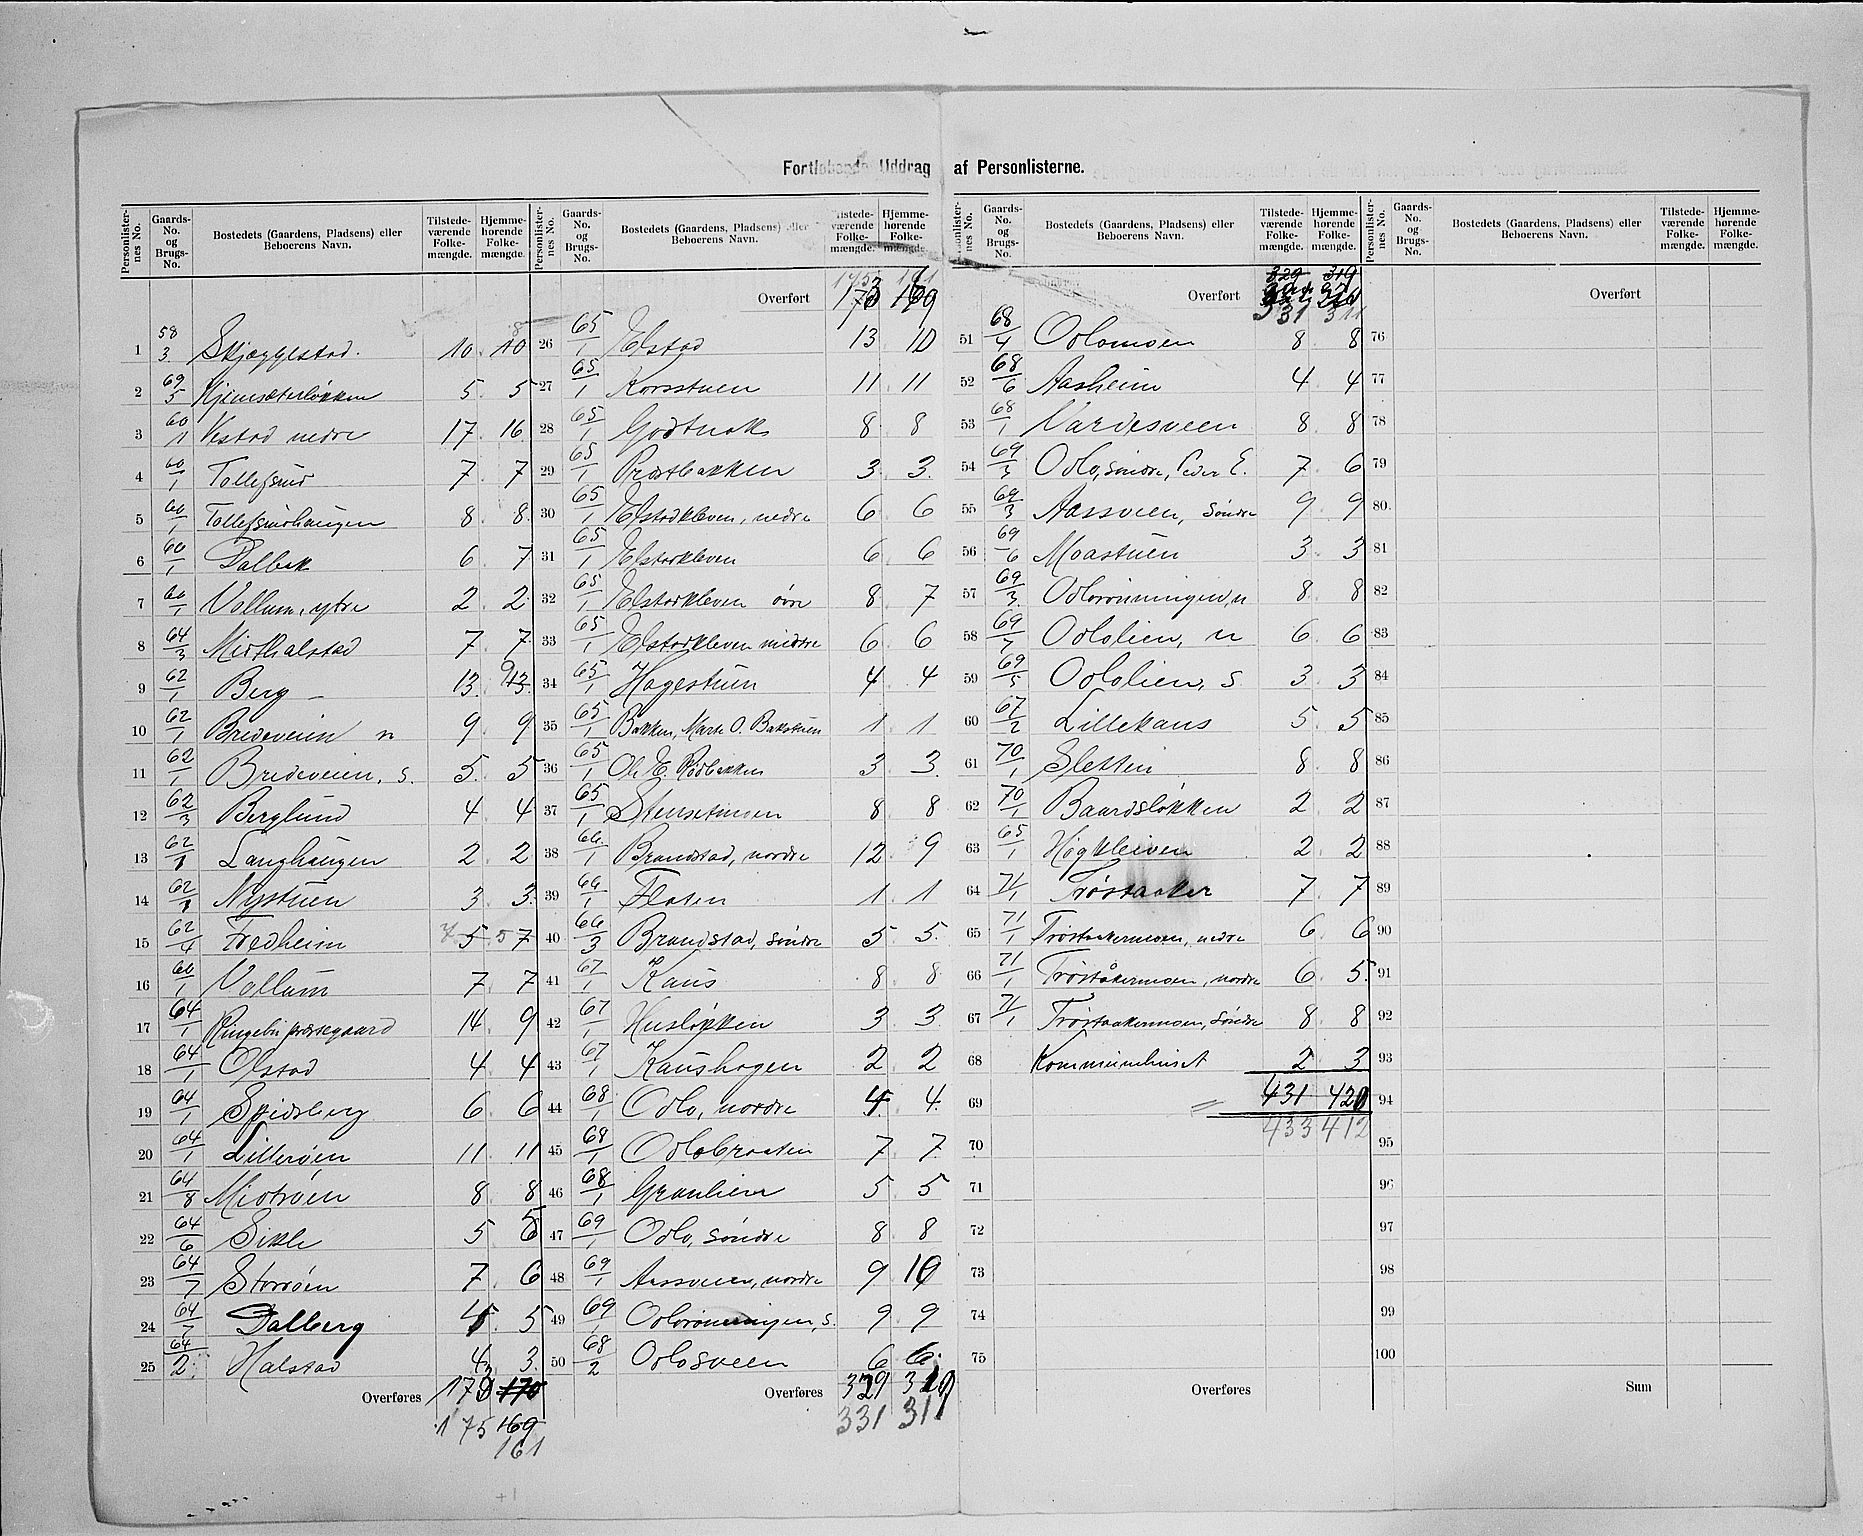 Fortløbende Uddrag af Personlisterne.
Personlister-nes No. | Gaards-No. og Brugs-No. | Bostedets (Gaardens, Pladsens) eller Beboerens Navn. | Tilstede-værende Folke-mængde. | Hjemme-hørende Folke-mængde.
1 58/3 Skjæggestad. 10. 10 8
2 69/5 Kjemsæterløkken 5. 5
3 60/1 Vestad nedre 17. 16
4 60/1 Tollefsrud 7. 7
5 60/1 Tollefsrudhaugen 8. 8
6 60/1 Dalbak 6. 7
7 60/1 Vollum, ytre 2. 2
8 64/3 Midthalstad 7. 7
9 62/1 Berg 13. 13
10 62/1 Bredeveien n 9. 9
11 62/1 Bredeveien, s. 5. 5
12 62/3 Berglund 4. 4
13 62/1 Langhaugen 2. 2
14 62/1 Nystuen 3. 3
15 62/4 Fredheim 5 7
16 60/1 Vollum 7. 7
17 64/1 Ringebu præstegaard 14. 9
18 64/1 Olstad 4. 4
19 64/1 Spidsberg 6. 6
20 64/1 Lillerøen 11. 11
21 64/8 Midtrøen 8. 8
22 64/6 Sikle 5 5
23 64/7 Storrøen 7. 6
24 64/7 Dalberg 5. 5
25 64/2 Halstad 4 3
Overføres 173 170
175 169
161
Personlister-nes No. | Gaards-No. og Brugs-No. | Bostedets (Gaardens, Pladsens) eller Beboerens Navn. | Tilstede-værende Folke-mængde. | Hjemme-hørende Folke-mængde.
175 161
Overført 173 169
26 65/1 Elstad 13 10
27 65/1 Korsstuen 11 11
28 65/1 Godtnok 8 8
29 65/1 Prestbakken 3. 3.
30 65/1 Elstadkleven, nedre 6 6
31 65/1 Elstadkleven 6 6
32 65/1 Elstadkleven øvre 8. 7
33 65/1 Elstadkleven midtre 6 6
34 65/1 Hagestuen 4 4
35 65/1 Bakken, Marte O. Bakstuen 1. 1
36 65/1 Ole E. Rødbakken 3 3.
37 65/1 Stensetmoen 8 8
38 66/1 Brandstad, nordre 12 9
39 66/1 Floten 1. 1
40 66/3 Brandstad, søndre 5 5.
41 67/1 Kaus 8 8
42 67/1 Husløkken 3 3.
43 67/1 Kaushagen 2 2
44 68/1 Odlo, nordre 4. 4.
45 68/1 Odlobraaten 7 7.
46 68/1 Granlien 5 5
47 69/1 Odlo, søndre 8 8
48 69/1 Aassveen, nordre 9 10
49 69/1 Odlorønningen, s. 9 9
50 68/2 Odlosveen 6 6.
Overføres 329 319
331 311
Personlister-nes No. | Gaards-No. og Brugs-No. | Bostedets (Gaardens, Pladsens) eller Beboerens Navn. | Tilstede-værende Folke-mængde. | Hjemme-hørende Folke-mængde.
329 319
Overført
331 311
51 68/4 Odlomoen 8. 8
52 68/6 Aasheim 4 4
53 68/1 Vardesveen 8. 8
54 69/3 Odlo, søndre, Peder E. 7. 6
55 69/3 Aassveen, søndre 9. 9
56 69/6 Moastuen 3. 3
57 69/3 Odlorønningen, n 8. 8
58 69/7 Odlolien, n 6. 6
59 69/5 Odlolien, s 3. 3
60 67/2 Lillekaus 5. 5
61 70/1 Sletten 8. 8
62 70/1 Baardsløkken 2 2
63 65/1 Høgkleiven 2 2
64 71/1 Trøstaaker 7. 7
65 71/1 Trøstaakermoen, nedre 6 6
66 71/1 Trøståkermoen, nordre 6. 5
67 71/1 Trøstaakermoen, søndre 8. 8
68 Kommunehuset 2. 3
69 = 431 420
433 412
70
71
72
73
74
75
Overføres
Personlister-nes No. | Gaards-No. og Brugs-No. | Bostedets (Gaardens, Pladsens) eller Beboerens Navn. | Tilstede-værende Folke-mængde. | Hjemme-hørende Folke-mængde.
Overført
76
77
78
79
80
81
82
83
84
85
86
87
88
89
90
91
92
93
94
95
96
97
98
99
100
Sum
+1